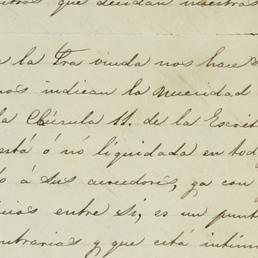 que decidan nuestras
la Sra viuda nos hace
nos indican la necesidad
la Cláusula 11. de la Escrit
está ó nó liquidada en tod
á sus acreedores, ya con
entre sí, es un punt
ontrarias y que está íntim